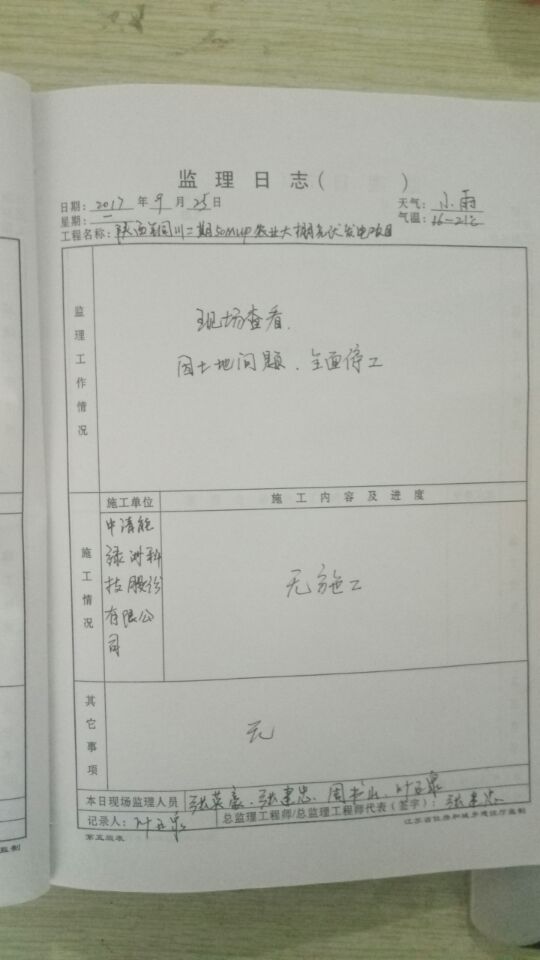 监理日志( )
日期: 2017 年 9 月 25 日 天气: 小雨
星期: 一 气温: 16-21℃
工程名称: 陕西铜川二期50MWp农业大棚光伏发电项目
监理工作情况
现场查看.
因土地问题、全面停工
施工情况
施工单位 施工内容及进度
中清能
绿洲科
技股份
有限公
司
无施工
其它事项
无
本日现场监理人员 张英豪、张建忠、周 、叶 泉
记录人: 叶 泉 总监理工程师/总监理工程师代表(签字): 张建忠
第五版表 江苏省住房和城乡建设厅监制
监制